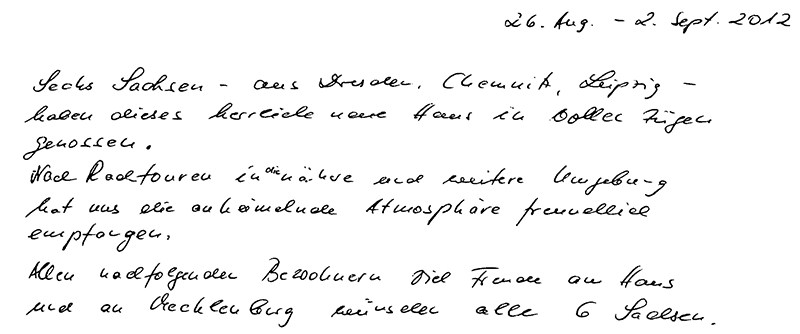 26. Aug. - 2. Sept. 2012
Sechs Sachsen - aus Dresden, Chemnitz, Leipzig -
haben dieses herrliche neue Haus in vollen Zügen
genossen.
Nach Radtouren in die nähre und weitere Umgebung
hat uns die anheimelnde Atmosphäre freundlich
empfangen.
Allen nachfolgenden Bewohnern viel Freude am Haus
und an Mecklenburg wünschen alle 6 Sachsen.